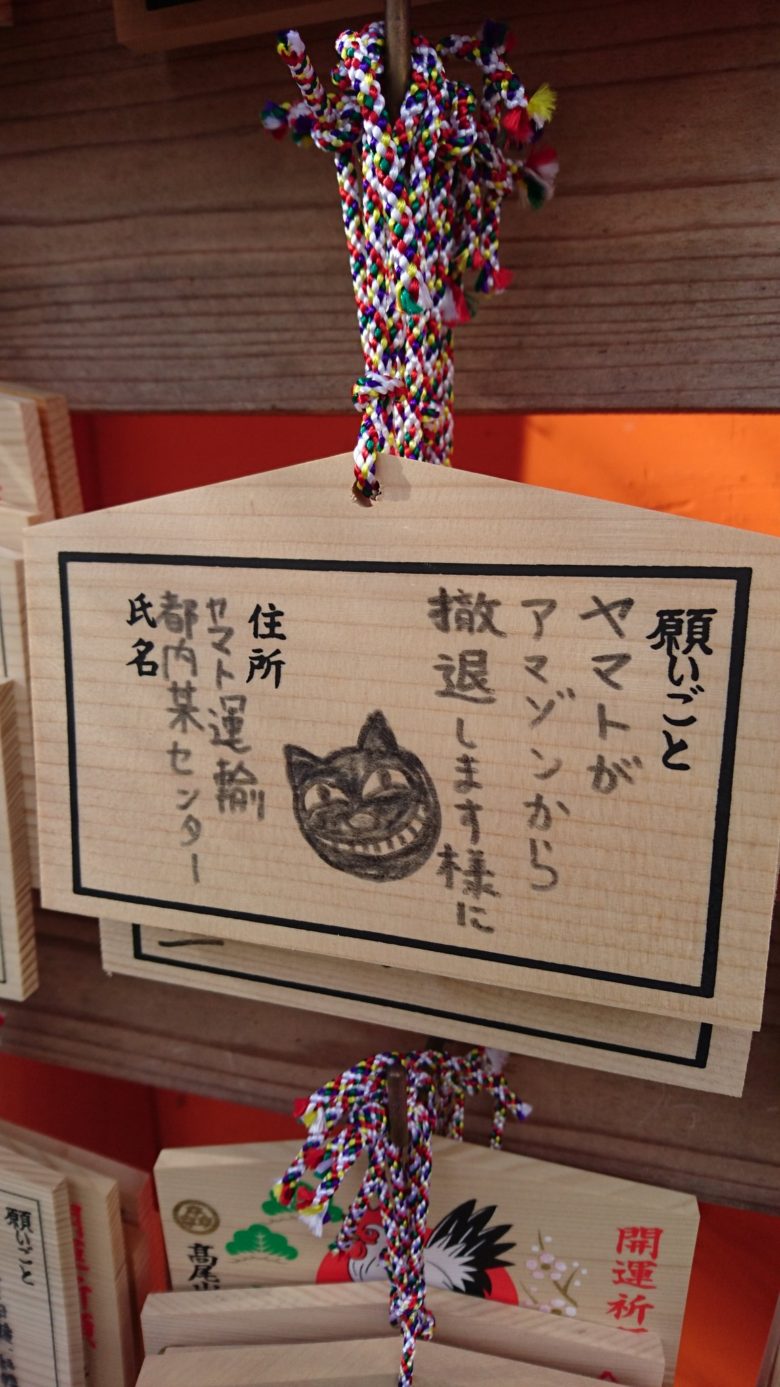 願いごと
ヤマトが
アマゾンから
撤退します様に
住所
ヤマト運輸
都内某センター
氏名
高尾山
開運祈
願いごと